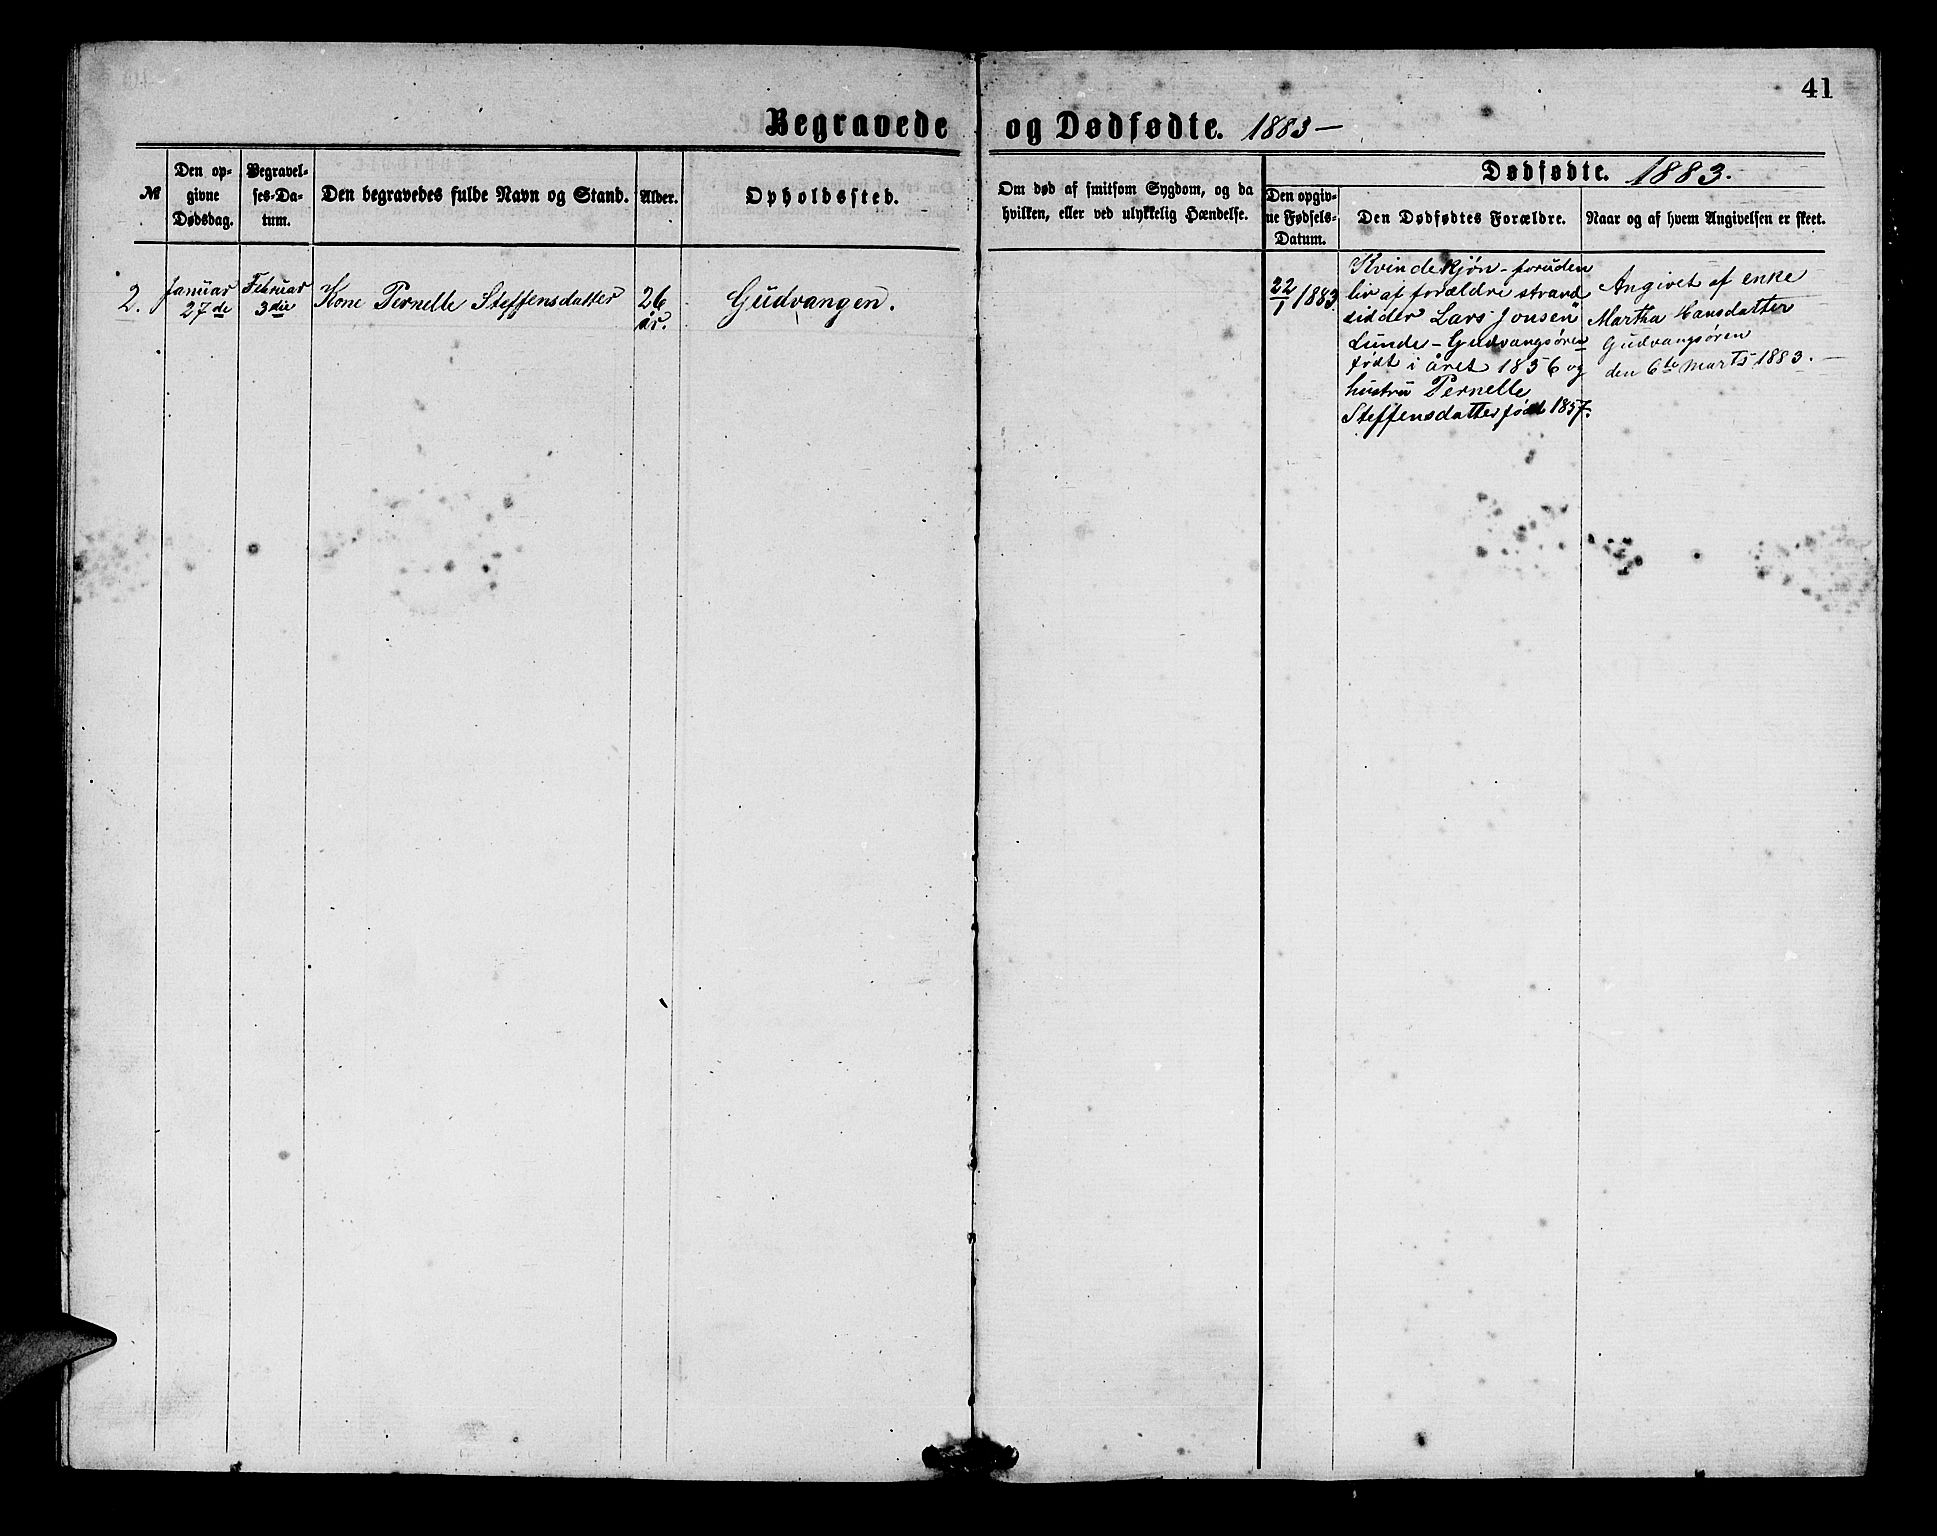 41
Begravede og Dødfødte. 1883 —
№
Den op-
givne
Dødsdag.
Begravel-
ses-Da-
tum.
Den begravedes fulde Navn og Stand.
Alder.
Opholdssted.
Om død af smitsom Sygdom, og da
hvilken, eller ved ulykkelig Hændelse.
Dødfødte. 1883.
Den opgiv-
ne Fødsels-
Datum.
Den Dødfødtes Forældre.
Naar og af hvem Angivelsen er skeet.
2.
Januar
27de
Februar
3die
Kone Pernelle Steffensdatter
26
år.
Gudvangen.
22/1 1883.
Kvindekjøn - foruden
liv af forældre strand
sidder Lars Jonsen
Lunde - Gudvangsøren
født i året 1856 og
hustru Pernelle
Steffensdatter født 1857.
Angivet af enke
Martha Hansdatter
Gudvangsøren
den 6te Marts 1883. —